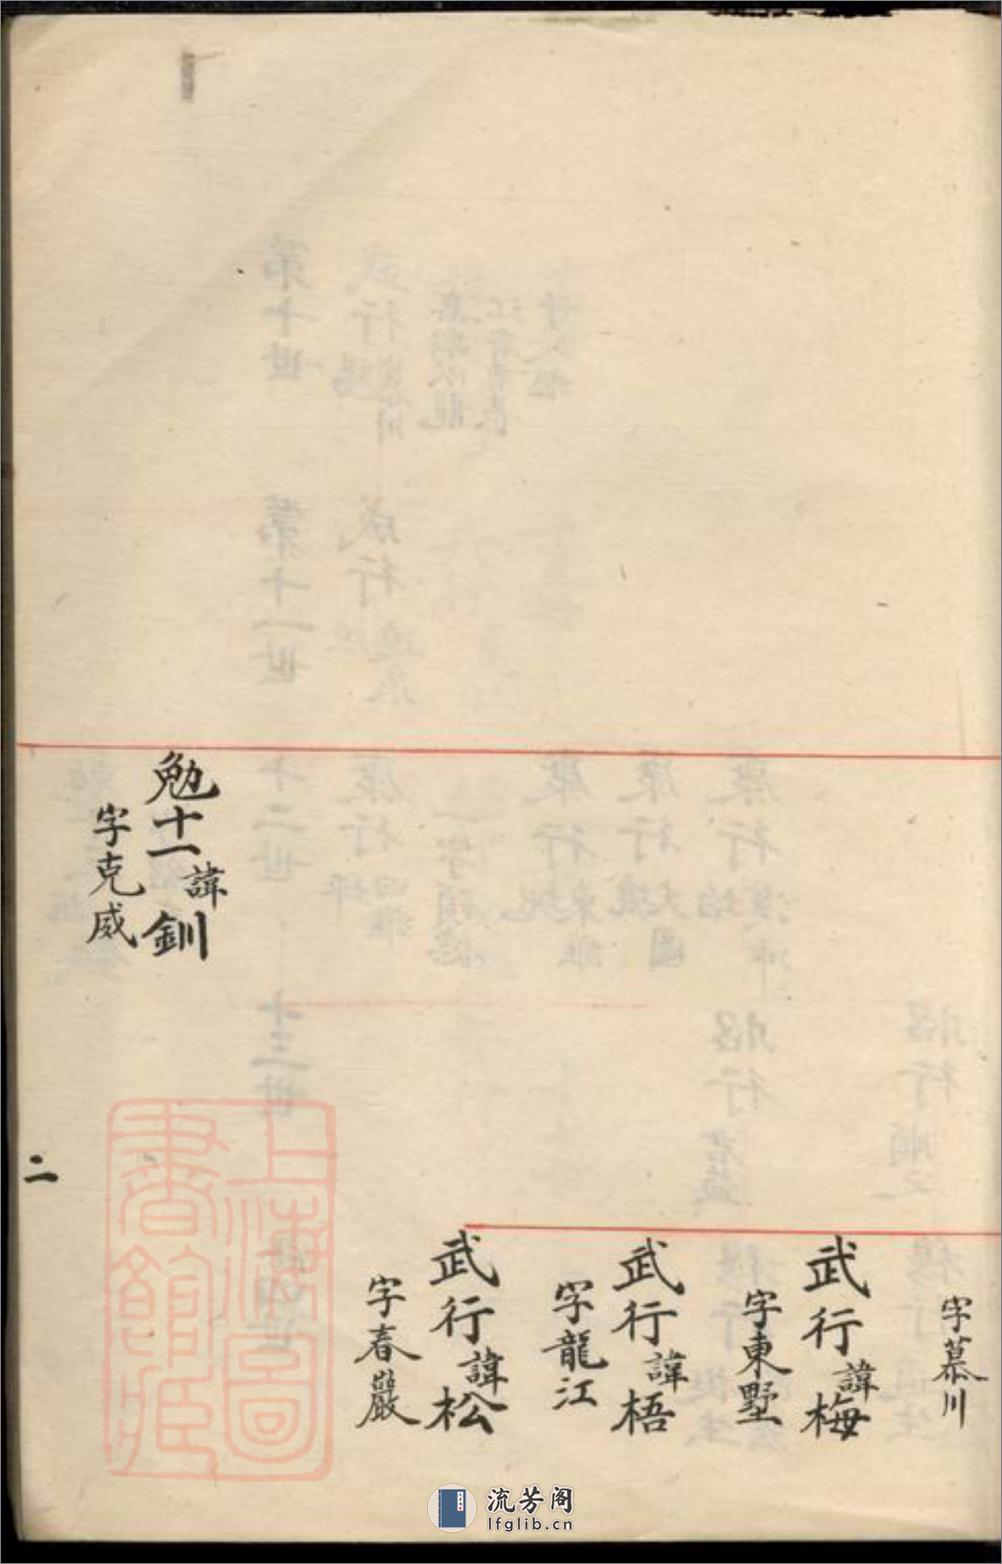 字慕川
武行諱梅
字東墅
武行諱梧
字龍江
武行諱松
字春嚴
勉十一諱釧
字克威
二
上海圖書館藏
流芳阁
lfglib.cn